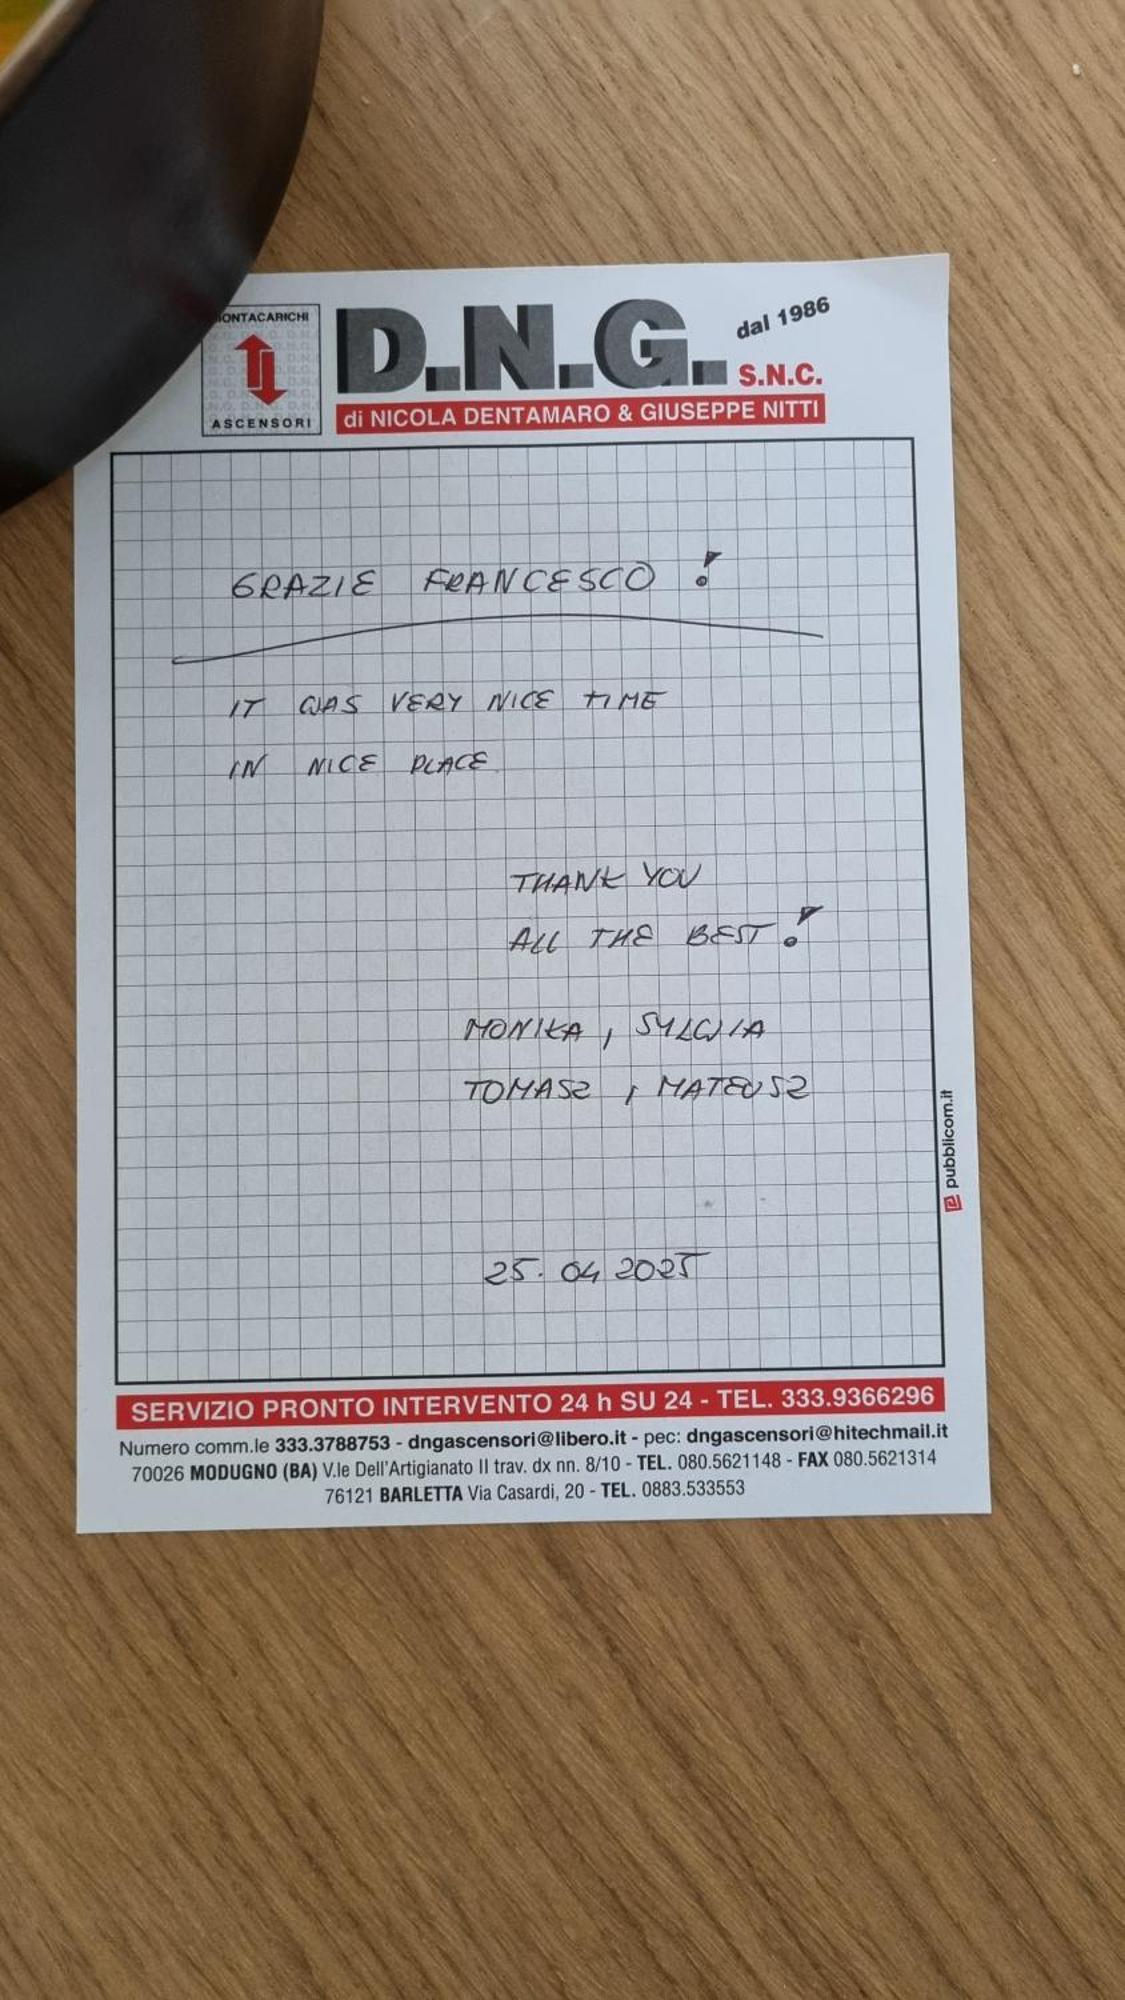 ONTACARICHI
ASCENSORI
D.N.G. dal 1986
S.N.C.
di NICOLA DENTAMARO & GIUSEPPE NITTI
GRAZIE FRANCESCO !
IT WAS VERY NICE TIME
IN NICE PLACE
THANK YOU
ALL THE BEST !
MONIKA , SYLWIA
TOMASZ , MATEUSZ
25.04 2025
pubblicom.it
SERVIZIO PRONTO INTERVENTO 24 h SU 24 - TEL. 333.9366296
Numero comm.le 333.3788753 - dngascensori@libero.it - pec: dngascensori@hitechmail.it
70026 MODUGNO (BA) V.le Dell'Artigianato II trav. dx nn. 8/10 - TEL. 080.5621148 - FAX 080.5621314
76121 BARLETTA Via Casardi, 20 - TEL. 0883.533553